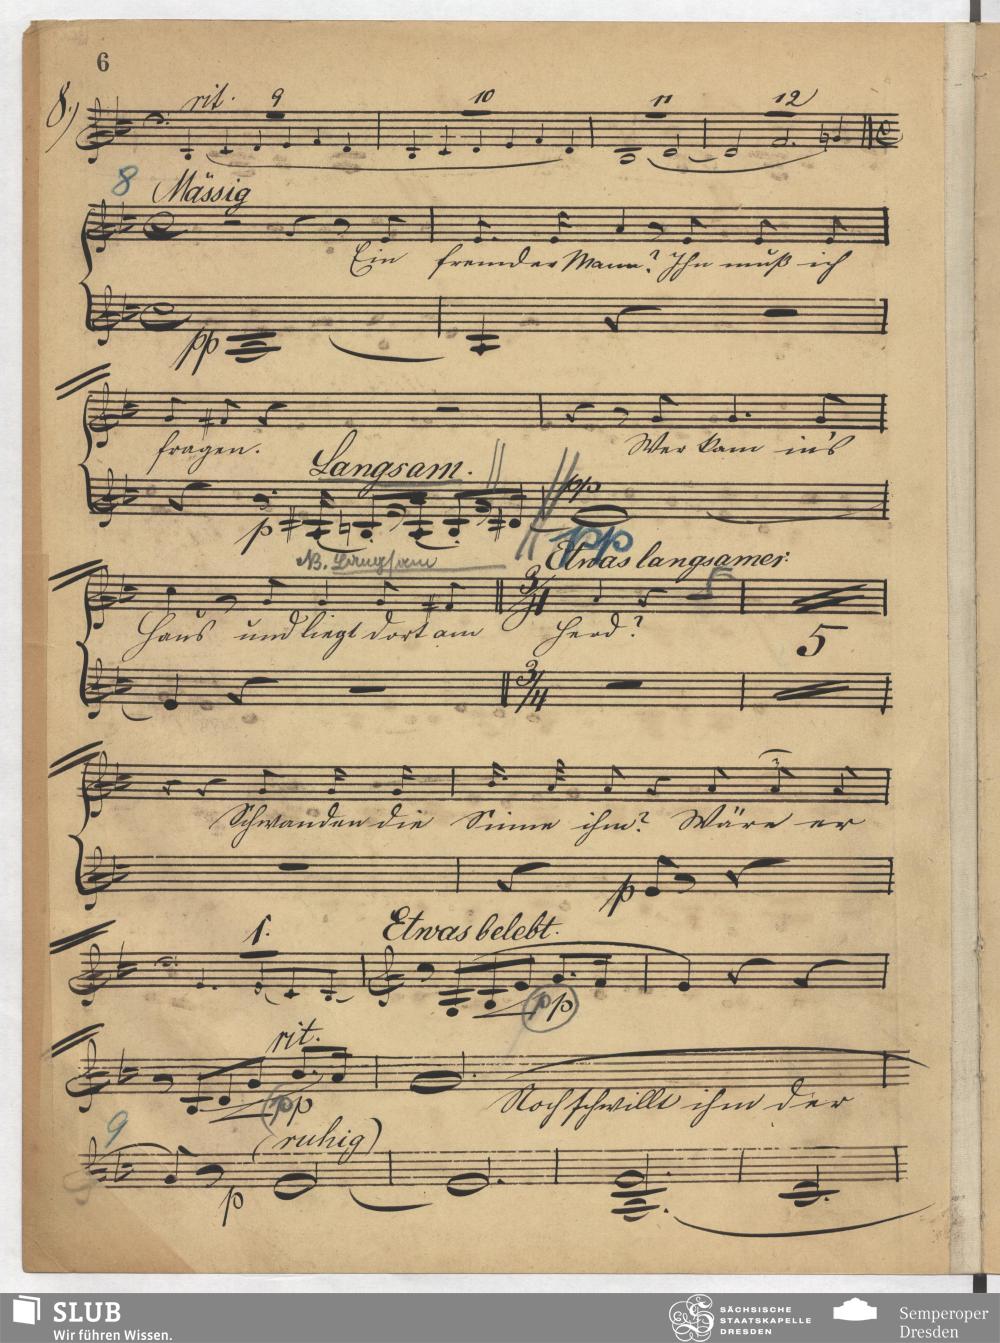 6
8.) rit. 9 10 11 12
8 Mässig
Ein fremder Mann? Ihn muß ich
pp
fragen. Wer kam in's
Langsam. pp
p
pp
NB. Langsam Etwas langsamer.
3/4
Haus und liegt dort am Herd?
5
3/4
Schwanden die Sinne ihm? Wäre er
3
p
1. Etwas belebt.
pp
rit.
pp
Noch schwillt ihm der
9 (ruhig)
p
SLUB
Wir führen Wissen.
SÄCHSISCHE
STAATSKAPELLE
DRESDEN
Semperoper
Dresden